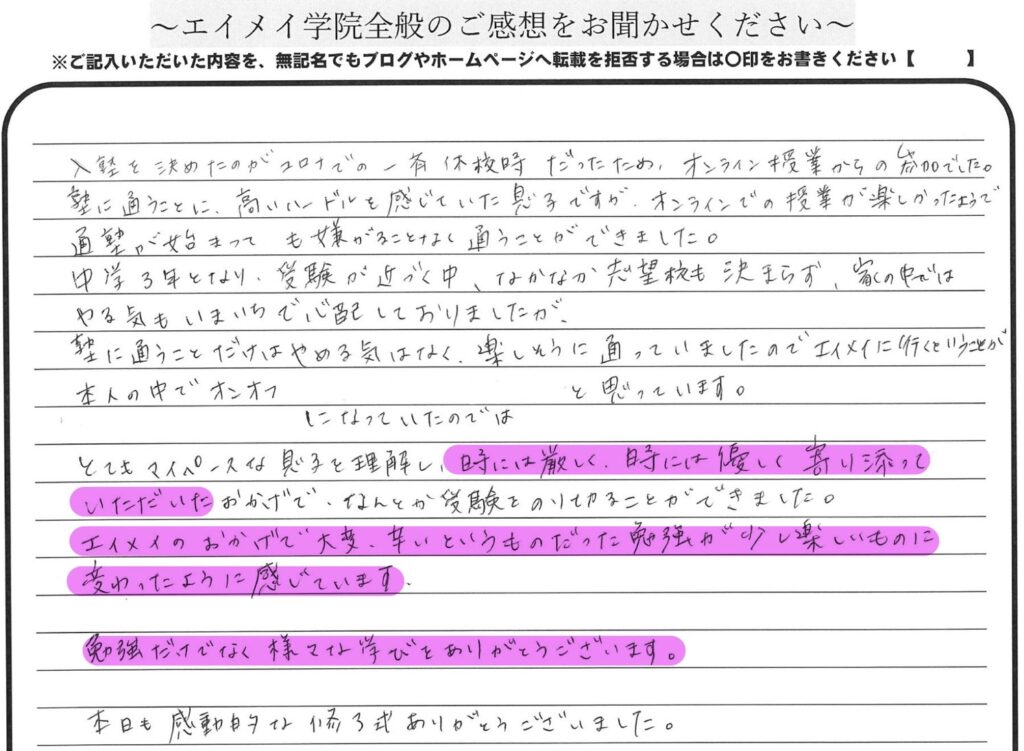 ～エイメイ学院全般のご感想をお聞かせください～
※ご記入いただいた内容を、無記名でもブログやホームページへ転載を拒否する場合は〇印をお書きください【　　】
入塾を決めたのがコロナでの一斉休校時だったため、オンライン授業からの参加でした。
塾に通うことに、高いハードルを感じていた息子ですが、オンラインでの授業が楽しかったようで
通塾が始まっても嫌がることなく通うことができました。
中学3年となり、受験が近づく中、なかなか志望校も決まらず、家の中では
やる気もいまいちで心配しておりましたが、
塾に通うことだけはやめる気はなく、楽しそうに通っていましたのでエイメイに行くということが
本人の中でオンオフ
になっていたのでは
と思っています。
とてもマイペースな息子を理解し、時には厳しく、時には優しく寄り添って
いただいたおかげで、なんとか受験をのり切ることができました。
エイメイのおかげで大変、辛いというものだった勉強が少し楽しいものに
変わったように感じています。
勉強だけでなく様々な学びをありがとうございます。
本日も感動的な修了式ありがとうございました。